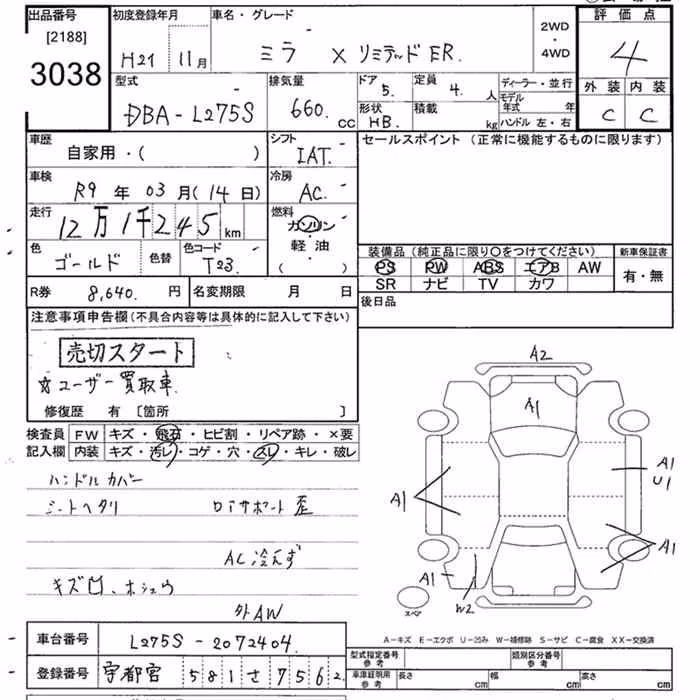 出品番号 初度登録年月 車名・グレード 2WD・4WD 評価点
[2188]
3038 H21 11月 ミラ X リミテッドER. 4
型式 排気量 ドア 定員 ディーラー・並行 外装 内装
DBA-L275S 660. cc 5. 4. 人 モデル年式 年 C C
形状 積載
HB. kg ハンドル 左・右
車歴 シフト セールスポイント (正常に機能するものに限ります)
自家用・( ) IAT.
車検 冷房
R9 年 03 月(14 日) AC.
走行 燃料
12万1千245 km ガソリン・軽油・( )
色 色替 色コード 装備品 (純正品に限り〇をつけてください) 新車保証書
ゴールド T23. PS PW ABS エアB AW 有・無
SR ナビ TV カワ
R券 8,640. 円 名変期限 月 日 後日品
注意事項申告欄(不具合内容等は具体的に記入して下さい)
売切スタート
☆ユーザー買取車
修復歴 有 [箇所 ]
検査員 FW キズ・飛石・ヒビ割・リペア跡・×要
記入欄 内装 キズ・汚レ・コゲ・穴・スレ・キレ・破レ
ハンドルカバー
シートヘタリ ロアサポート歪
AC冷えず
キズ凹、ホシュウ
外AW
A2
A1
A1
A1
U1
A1
A1
W2
スペア
A-キズ E-エクボ U-凹み W-補修跡 S-サビ C-腐食 XX-交換済
車台番号 L275S-2072404.
型式指定番号 参考 類別区分番号 参考
登録番号 宇都宮 581 さ 7562
車庫証明用 参考 長さ cm 幅 cm 高さ cm